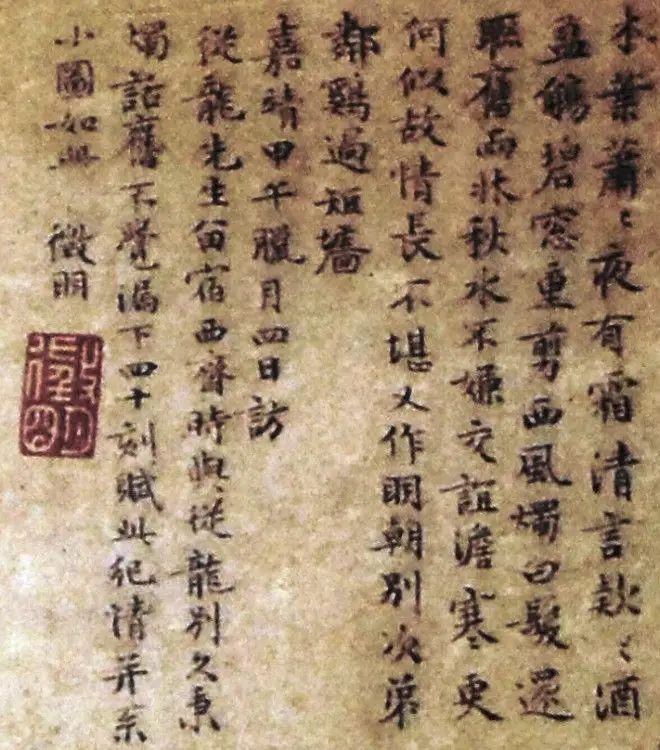 木葉蕭〻夜有霜清言欵〻酒
盈觴碧窓重剪西風燭白髮還
聯舊雨牀秋水不嫌交誼澹寒更
何似故情長不堪又作明朝別次第
鄰鷄過短墻
嘉靖甲午臘月四日訪
從龍先生留宿西齋時與從龍別久秉
燭話舊不覺漏下四十刻賦此紀情并系
小圖如此 徵明
徵明